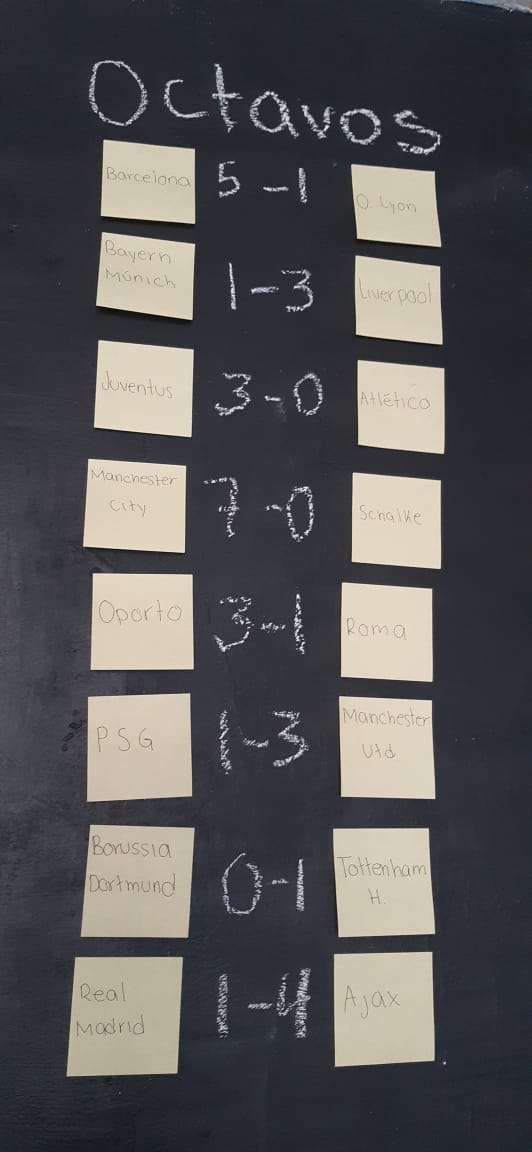 Octavos
Barcelona 5-1 O. Lyon
Bayern
Múnich 1-3 Liverpool
Juventus 3-0 Atlético
Manchester
City 7-0 Schalke
Oporto 3-1 Roma
PSG 1-3 Manchester
Utd
Borussia
Dortmund 0-1 Tottenham
H.
Real
Madrid 1-4 Ajax